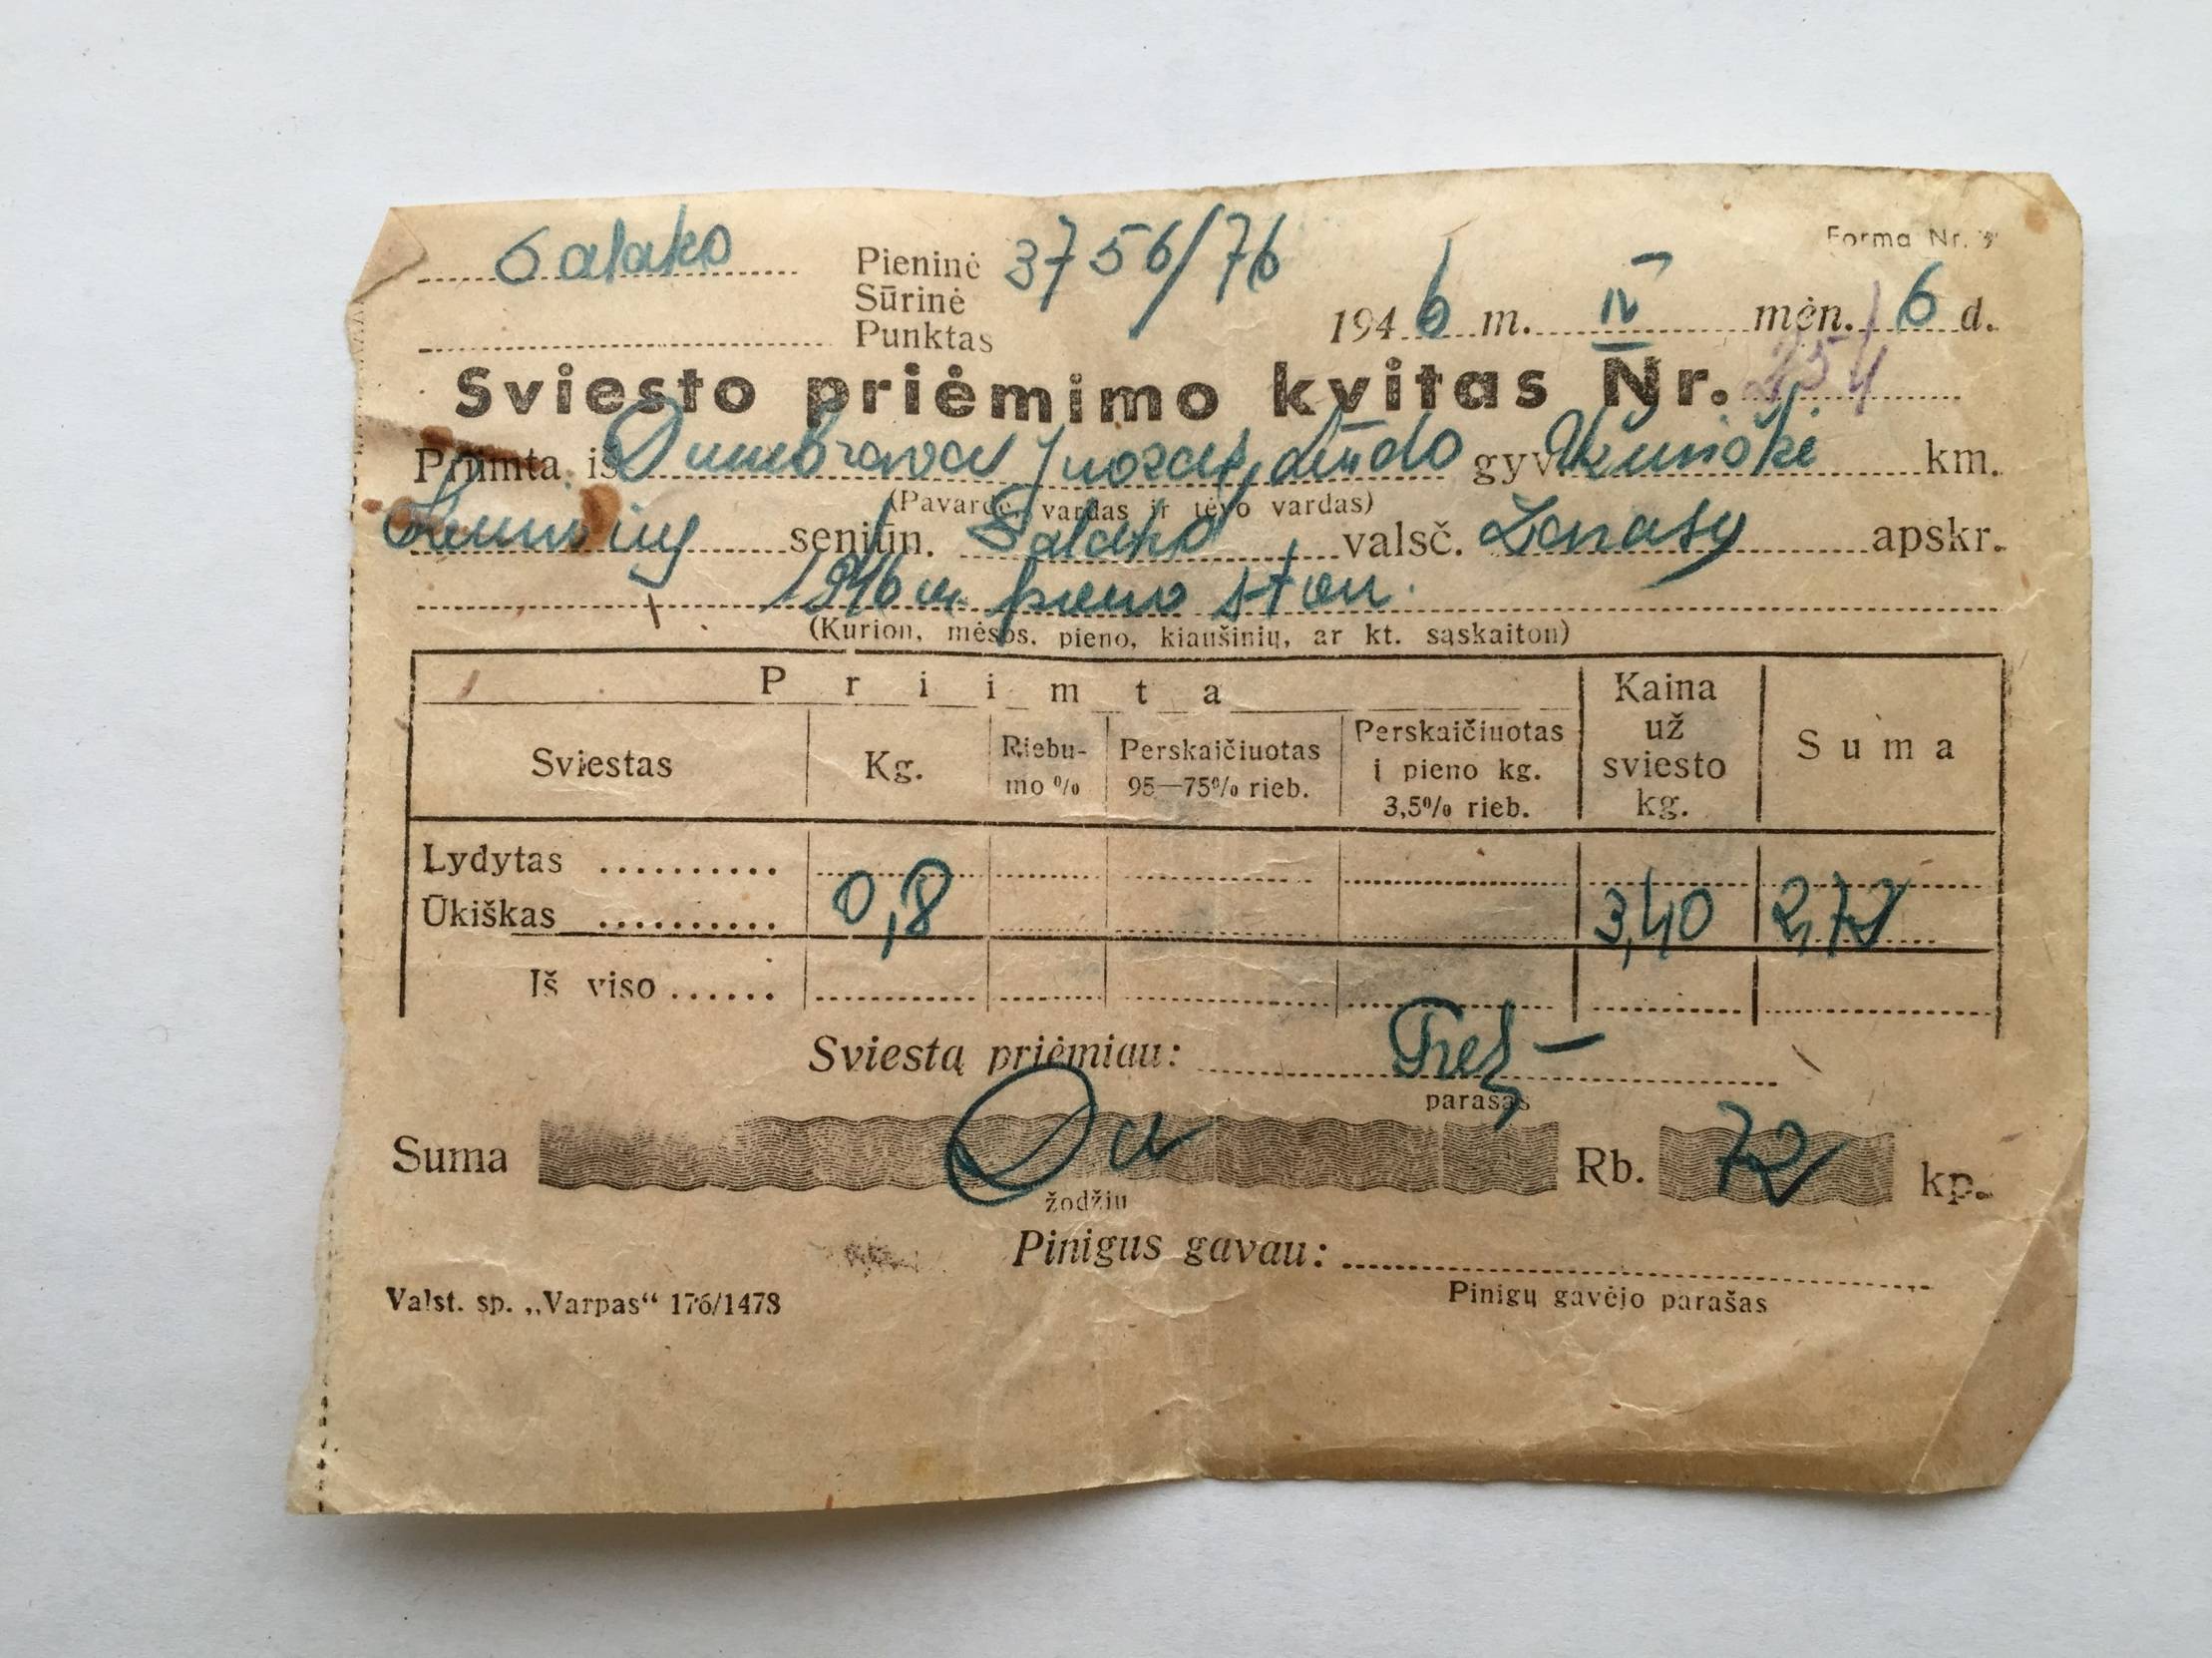 Salako Pieninė 3756/76 Forma Nr.
Sūrinė
Punktas 1946 m. IV mėn. 16 d.
Sviesto priėmimo kvitas Nr. 254
Priimta iš Dumbravas Juozas, Liudo gyv. km.
(Pavardė, vardas ir tėvo vardas)
seniūn. Salako valsč. Zarasų apskr.
1946 m. pieno
(Kurion, mėsos, pieno, kiaušinių, ar kt. sąskaiton)
Priimta Kaina už sviesto kg. Suma
Sviestas Kg. Riebumo % Perskaičiuotas 95—75% rieb. Perskaičiuotas į pieno kg. 3,5% rieb.
Lydytas ..........
Ūkiškas .......... 0,8 3,40 2,72
Iš viso ......
Sviestą priėmiau:
parašas
Suma Du Rb. 72 kp.
žodžiu
Pinigus gavau:
Valst. sp. „Varpas“ 176/1478 Pinigų gavėjo parašas